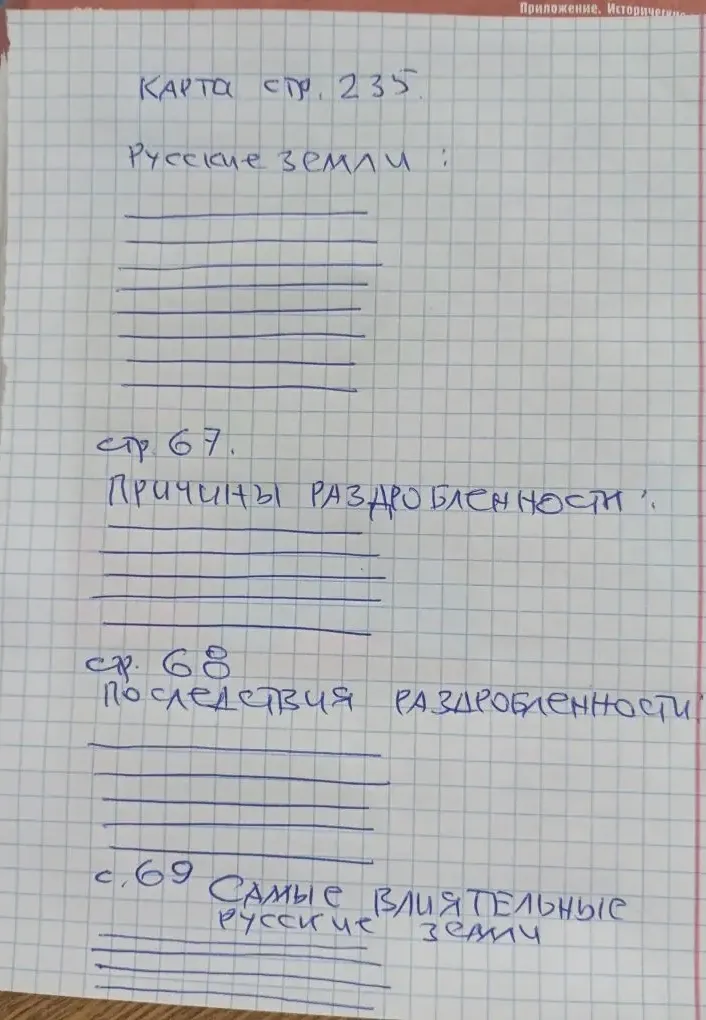 Приложение. Исторические
КАРТА стр. 235.
Русские земли :
стр. 67.
ПРИЧИНЫ РАЗДРОБЛЕННОСТИ :
стр. 68
ПОСЛЕДСТВИЯ РАЗДРОБЛЕННОСТИ
с. 69 САМЫЕ ВЛИЯТЕЛЬНЫЕ
РУССКИЕ ЗЕМЛИ